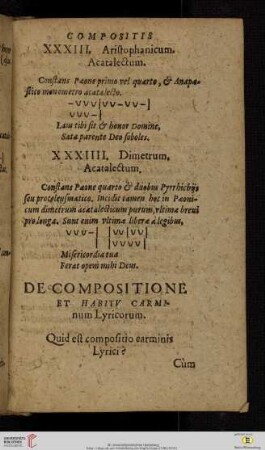 COMPOSITIS
XXXIII. Aristophanicum.
Acatalectum.
Constans Paone primo vel quarto, & Anapæ-
stico monometro acatalecto.
–vvv|vv–vv–|
vvv–|
Laus tibi sit & honor Domine,
Sata parente Deo soboles.
XXXIIII. Dimetrum.
Acatalectum.
Constans Paone quarto & duobus Pyrrhichijs
seu proceleusmatico. Incidit tamen hoc in Pæoni-
cum dimetrum acatalecticum purum, vltima breui
pro longa. Sunt enim vltimæ liberæ à legibus.
vvv–| |vv vv|
|vvvv|
Misericordia tua
Ferat opem mihi Deus.
DE COMPOSITIONE
ET HABITV CARMI-
num Lyricorum.
Quid est compositio carminis
Lyrici?
Cùm